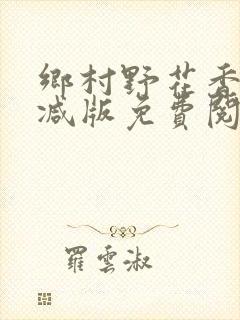 鄉村野花香
减版免費閱
羅雲淑